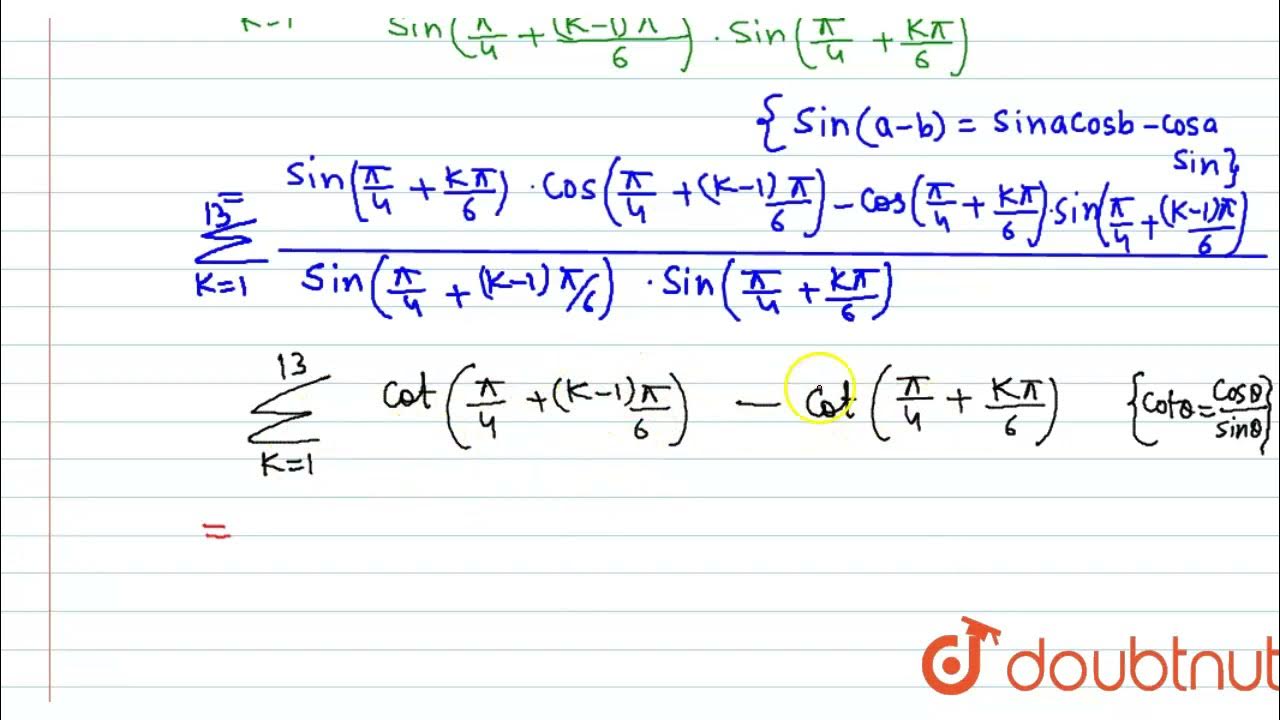 K=1 Sin(π/4 + (K-1)π/6) . Sin(π/4 + Kπ/6)
{ Sin(a-b) = sinacosb - cosa
Sin}
13 Σ K=1 Sin(π/4 + Kπ/6) . Cos(π/4 + (K-1)π/6) - Cos(π/4 + Kπ/6) . Sin(π/4 + (K-1)π/6)
Sin(π/4 + (K-1)π/6) . Sin(π/4 + Kπ/6)
13 Σ K=1 Cot(π/4 + (K-1)π/6) - Cot(π/4 + Kπ/6) {Cotθ = Cosθ/sinθ}
=
doubtnut